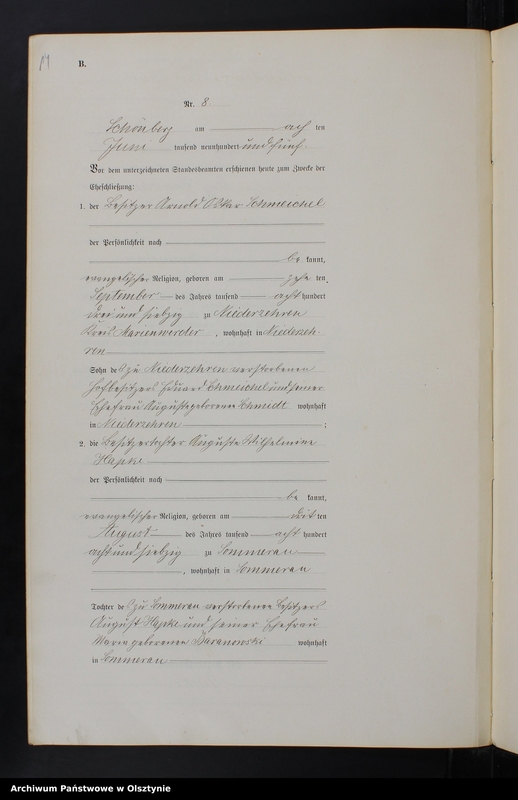 B.
Nr. 8
Schönberg am acht ten
Juni tausend neunhundert und fünf
Vor dem unterzeichneten Standesbeamten erschienen heute zum Zwecke der
Eheschließung:
1. der Besitzer Arnold Oskar Schmeichel
der Persönlichkeit nach
be kannt,
evangelischer Religion, geboren am zehn ten
September des Jahres tausend acht hundert
drei und siebzig zu Niederzehren
Kreis Marienwerder, wohnhaft in Niederzeh-
ren
Sohn des zu Niederzehren verstorbenen
Hofbesitzers Eduard Schmeichel und seiner
Ehefrau Auguste geborenen Schmidt wohnhaft
in Niederzehren;
2. die Besitzertochter Auguste Wilhelmine
Hapke
der Persönlichkeit nach
be kannt,
evangelischer Religion, geboren am drit ten
August des Jahres tausend acht hundert
acht und siebzig zu Sommerau
, wohnhaft in Sommerau
Tochter des zu Sommerau verstorbenen Besitzers
August Hapke und seiner Ehefrau
Maria geborenen Baranowski wohnhaft
in Sommerau
Archiwum Państwowe w Olsztynie